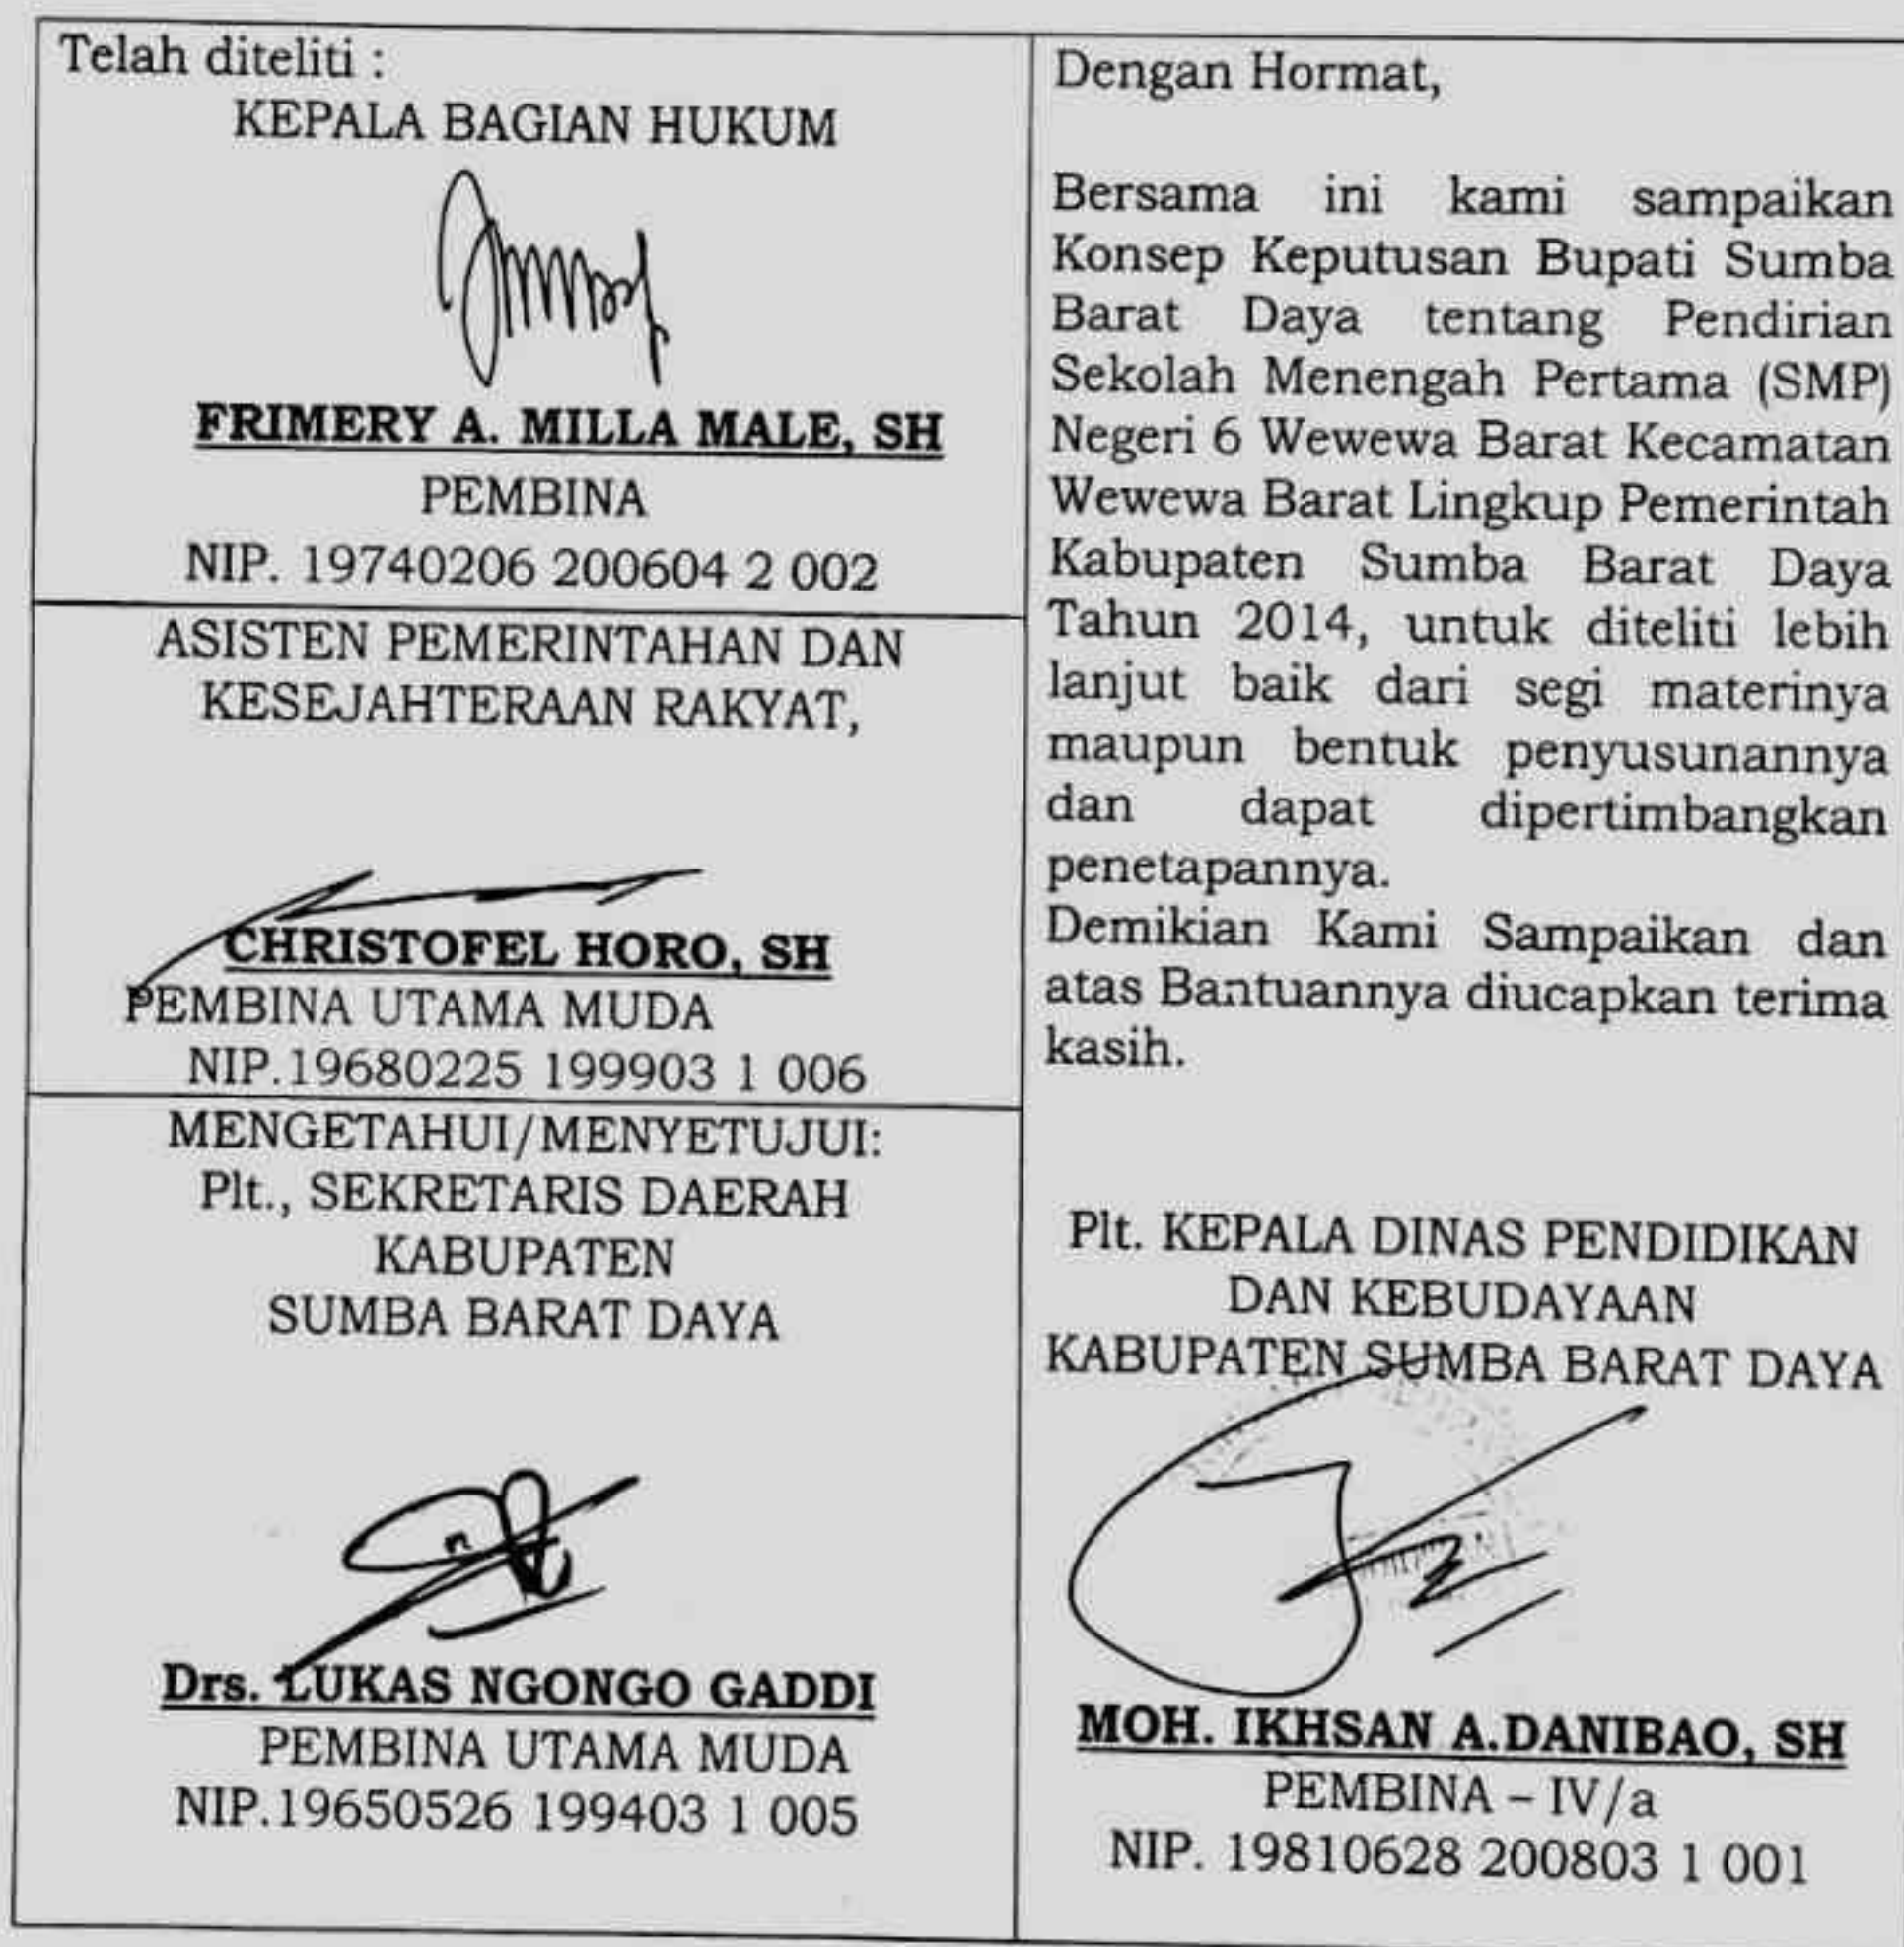 Telah diteliti :
KEPALA BAGIAN HUKUM
FRIMERY A. MILLA MALE, SH
PEMBINA
NIP. 19740206 200604 2 002
ASISTEN PEMERINTAHAN DAN
KESEJAHTERAAN RAKYAT,
CHRISTOFEL HORO, SH
PEMBINA UTAMA MUDA
NIP.19680225 199903 1 006
MENGETAHUI/MENYETUJUI:
Plt., SEKRETARIS DAERAH
KABUPATEN
SUMBA BARAT DAYA
Drs. LUKAS NGONGO GADDI
PEMBINA UTAMA MUDA
NIP.19650526 199403 1 005
Dengan Hormat,
Bersama ini kami sampaikan
Konsep Keputusan Bupati Sumba
Barat Daya tentang Pendirian
Sekolah Menengah Pertama (SMP)
Negeri 6 Wewewa Barat Kecamatan
Wewewa Barat Lingkup Pemerintah
Kabupaten Sumba Barat Daya
Tahun 2014, untuk diteliti lebih
lanjut baik dari segi materinya
maupun bentuk penyusunannya
dan dapat dipertimbangkan
penetapannya.
Demikian Kami Sampaikan dan
atas Bantuannya diucapkan terima
kasih.
Plt. KEPALA DINAS PENDIDIKAN
DAN KEBUDAYAAN
KABUPATEN SUMBA BARAT DAYA
MOH. IKHSAN A.DANIBAO, SH
PEMBINA – IV/a
NIP. 19810628 200803 1 001